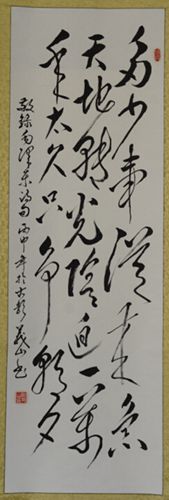 多少事從来急
天地轉光陰迫一萬
年太久只争朝夕
敬録毛澤东詩句 丙申年於古 義山書